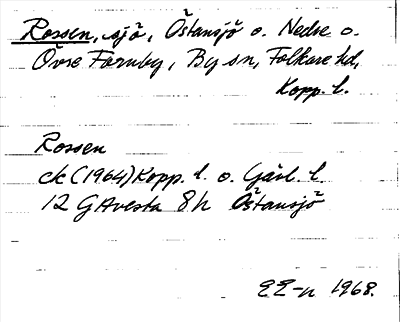 Rossen, sjö, Östansjö o. Nedre o.
Övre Fornby, By sn, Folkare hd,
Kopp. l.
Rossen
ek (1964) Kopp. l. o. Gävl. l.
12 G Avesta 8 h Östansjö
EE-n 1968.